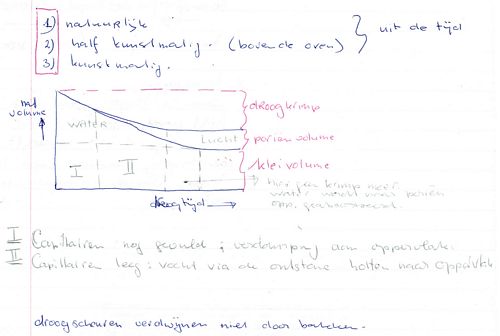 1) natuurlijk
2) half kunstmatig. (boven de oven)
3) kunstmatig.
uit de tijd
nat volume
water
droogkrimp
Lucht
porien volume
I
II
kleivolume
hier geen krimp meer
water porien
opp.
droogtijd
I Capillairen nog gevuld; verdamping aan oppervlak.
II Capillairen leeg: vocht via de ontstane holten naar oppervlak
droogscheuren verdwijnen niet door bakken.